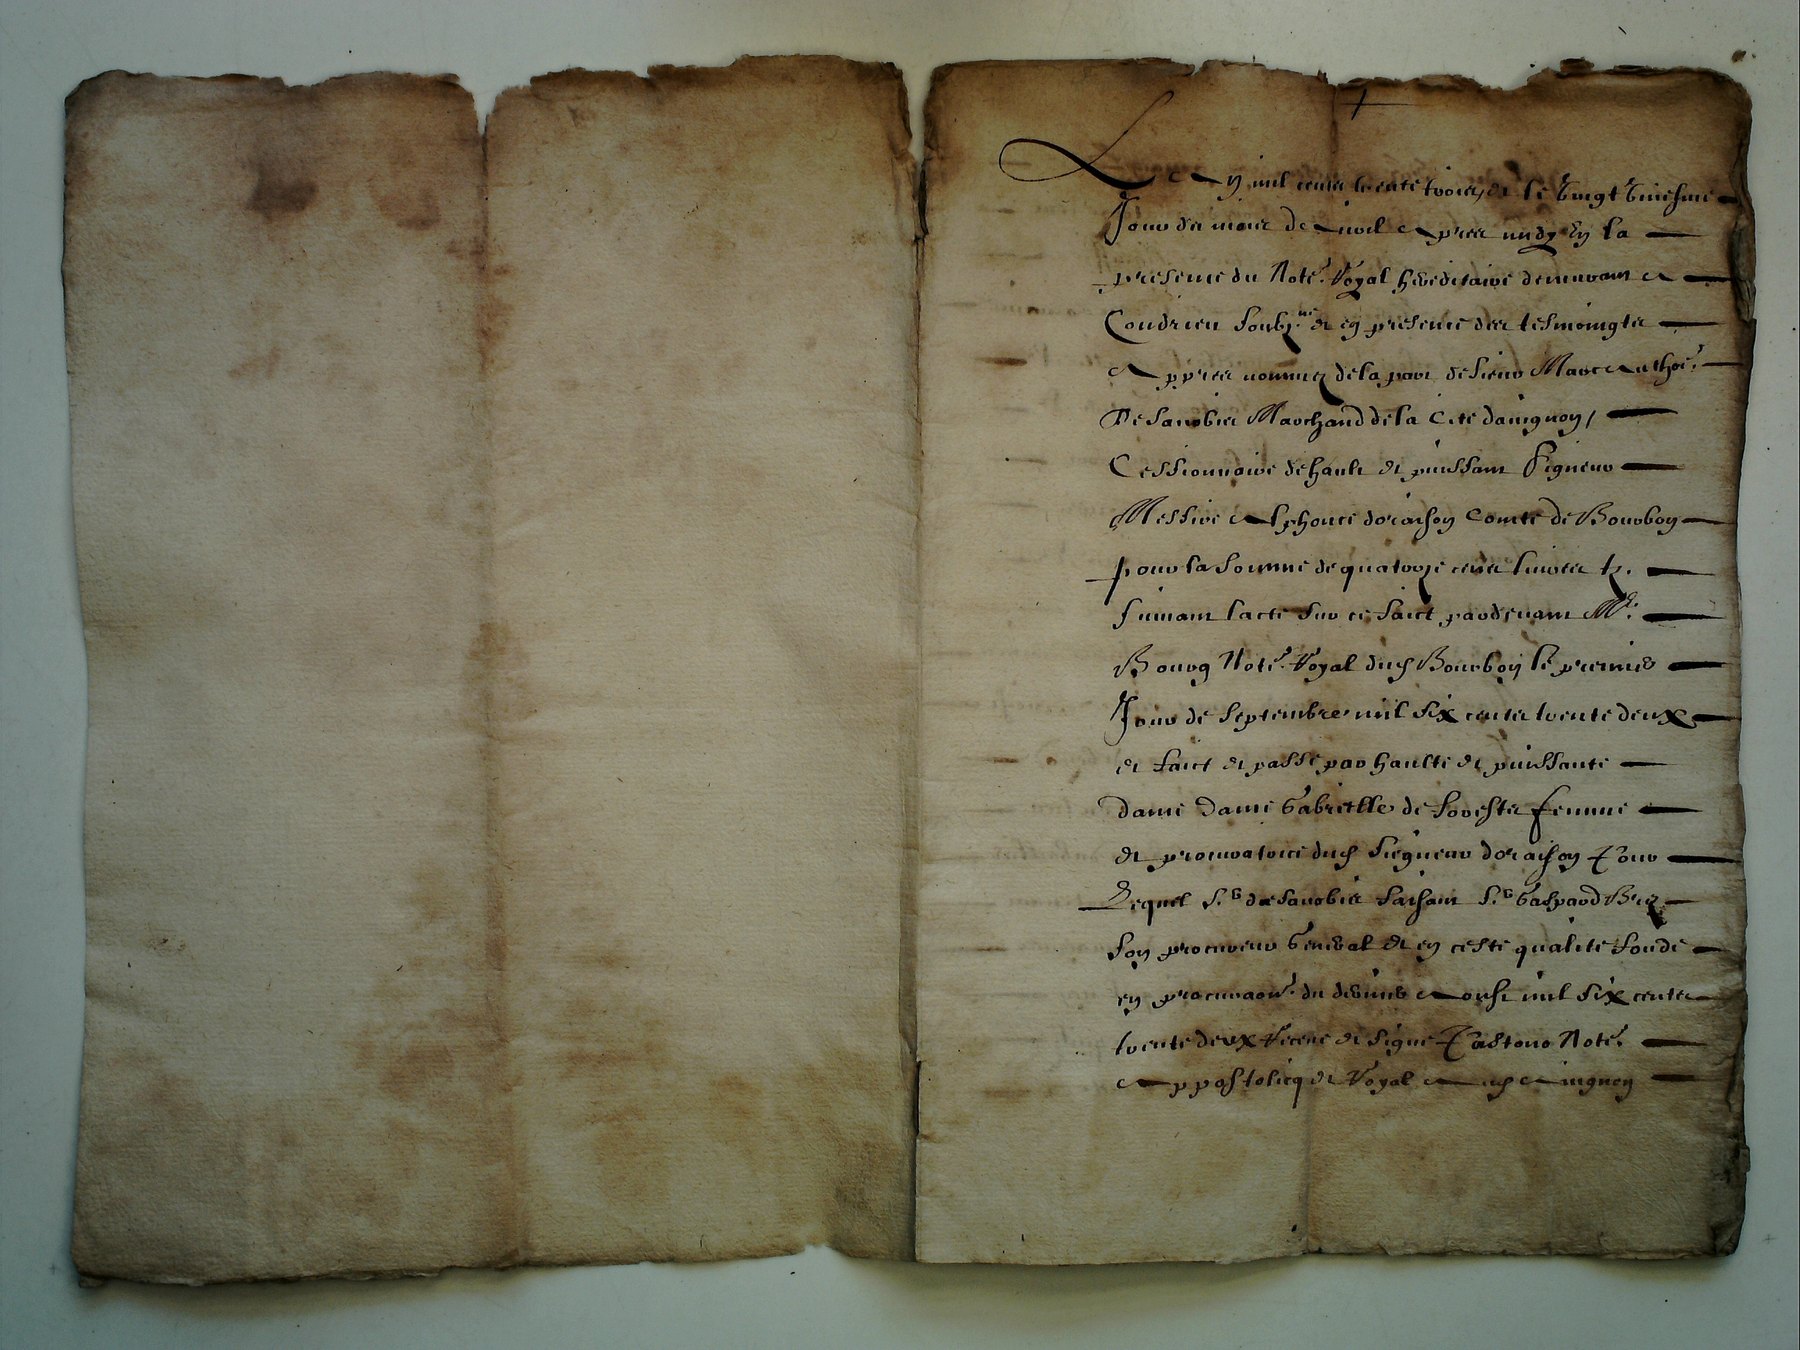 L'an mil cents trente trois, et le vingt huiesme
Jour du mois de Apvril apres midy En la
presence du Note.r Royal hereditaire demeurant a
Condrieu soubz.ne et en presence des tesmoingts
Appres nommez de la part de sieur Marc Anthoe.
De Marchand de la Cité davignon,
Cessionnaire de hault et puissant Signeur
Messire Alphonce doraison Comte de Bourbon
pour la somme de quatorze cents livres tz.
suivant lacte sur ce faict pardevant Me.
Bourg Note.r Royal dud Bourbon le premier
Jour de septembre mil six cents trente deux
et faict et passé par haulte et puissante
dame Dame Gabrielle de femme
et procuratrice dud Siegneur doraison Pour
Lequel S.r faisant S.r Gaspard
son procureur General et en ceste qualité fondé
en procuraon. du dernier Aoust mil six cents
trente deux Receue et signe Note.r
Appostolicq et Royal Aud Avignon